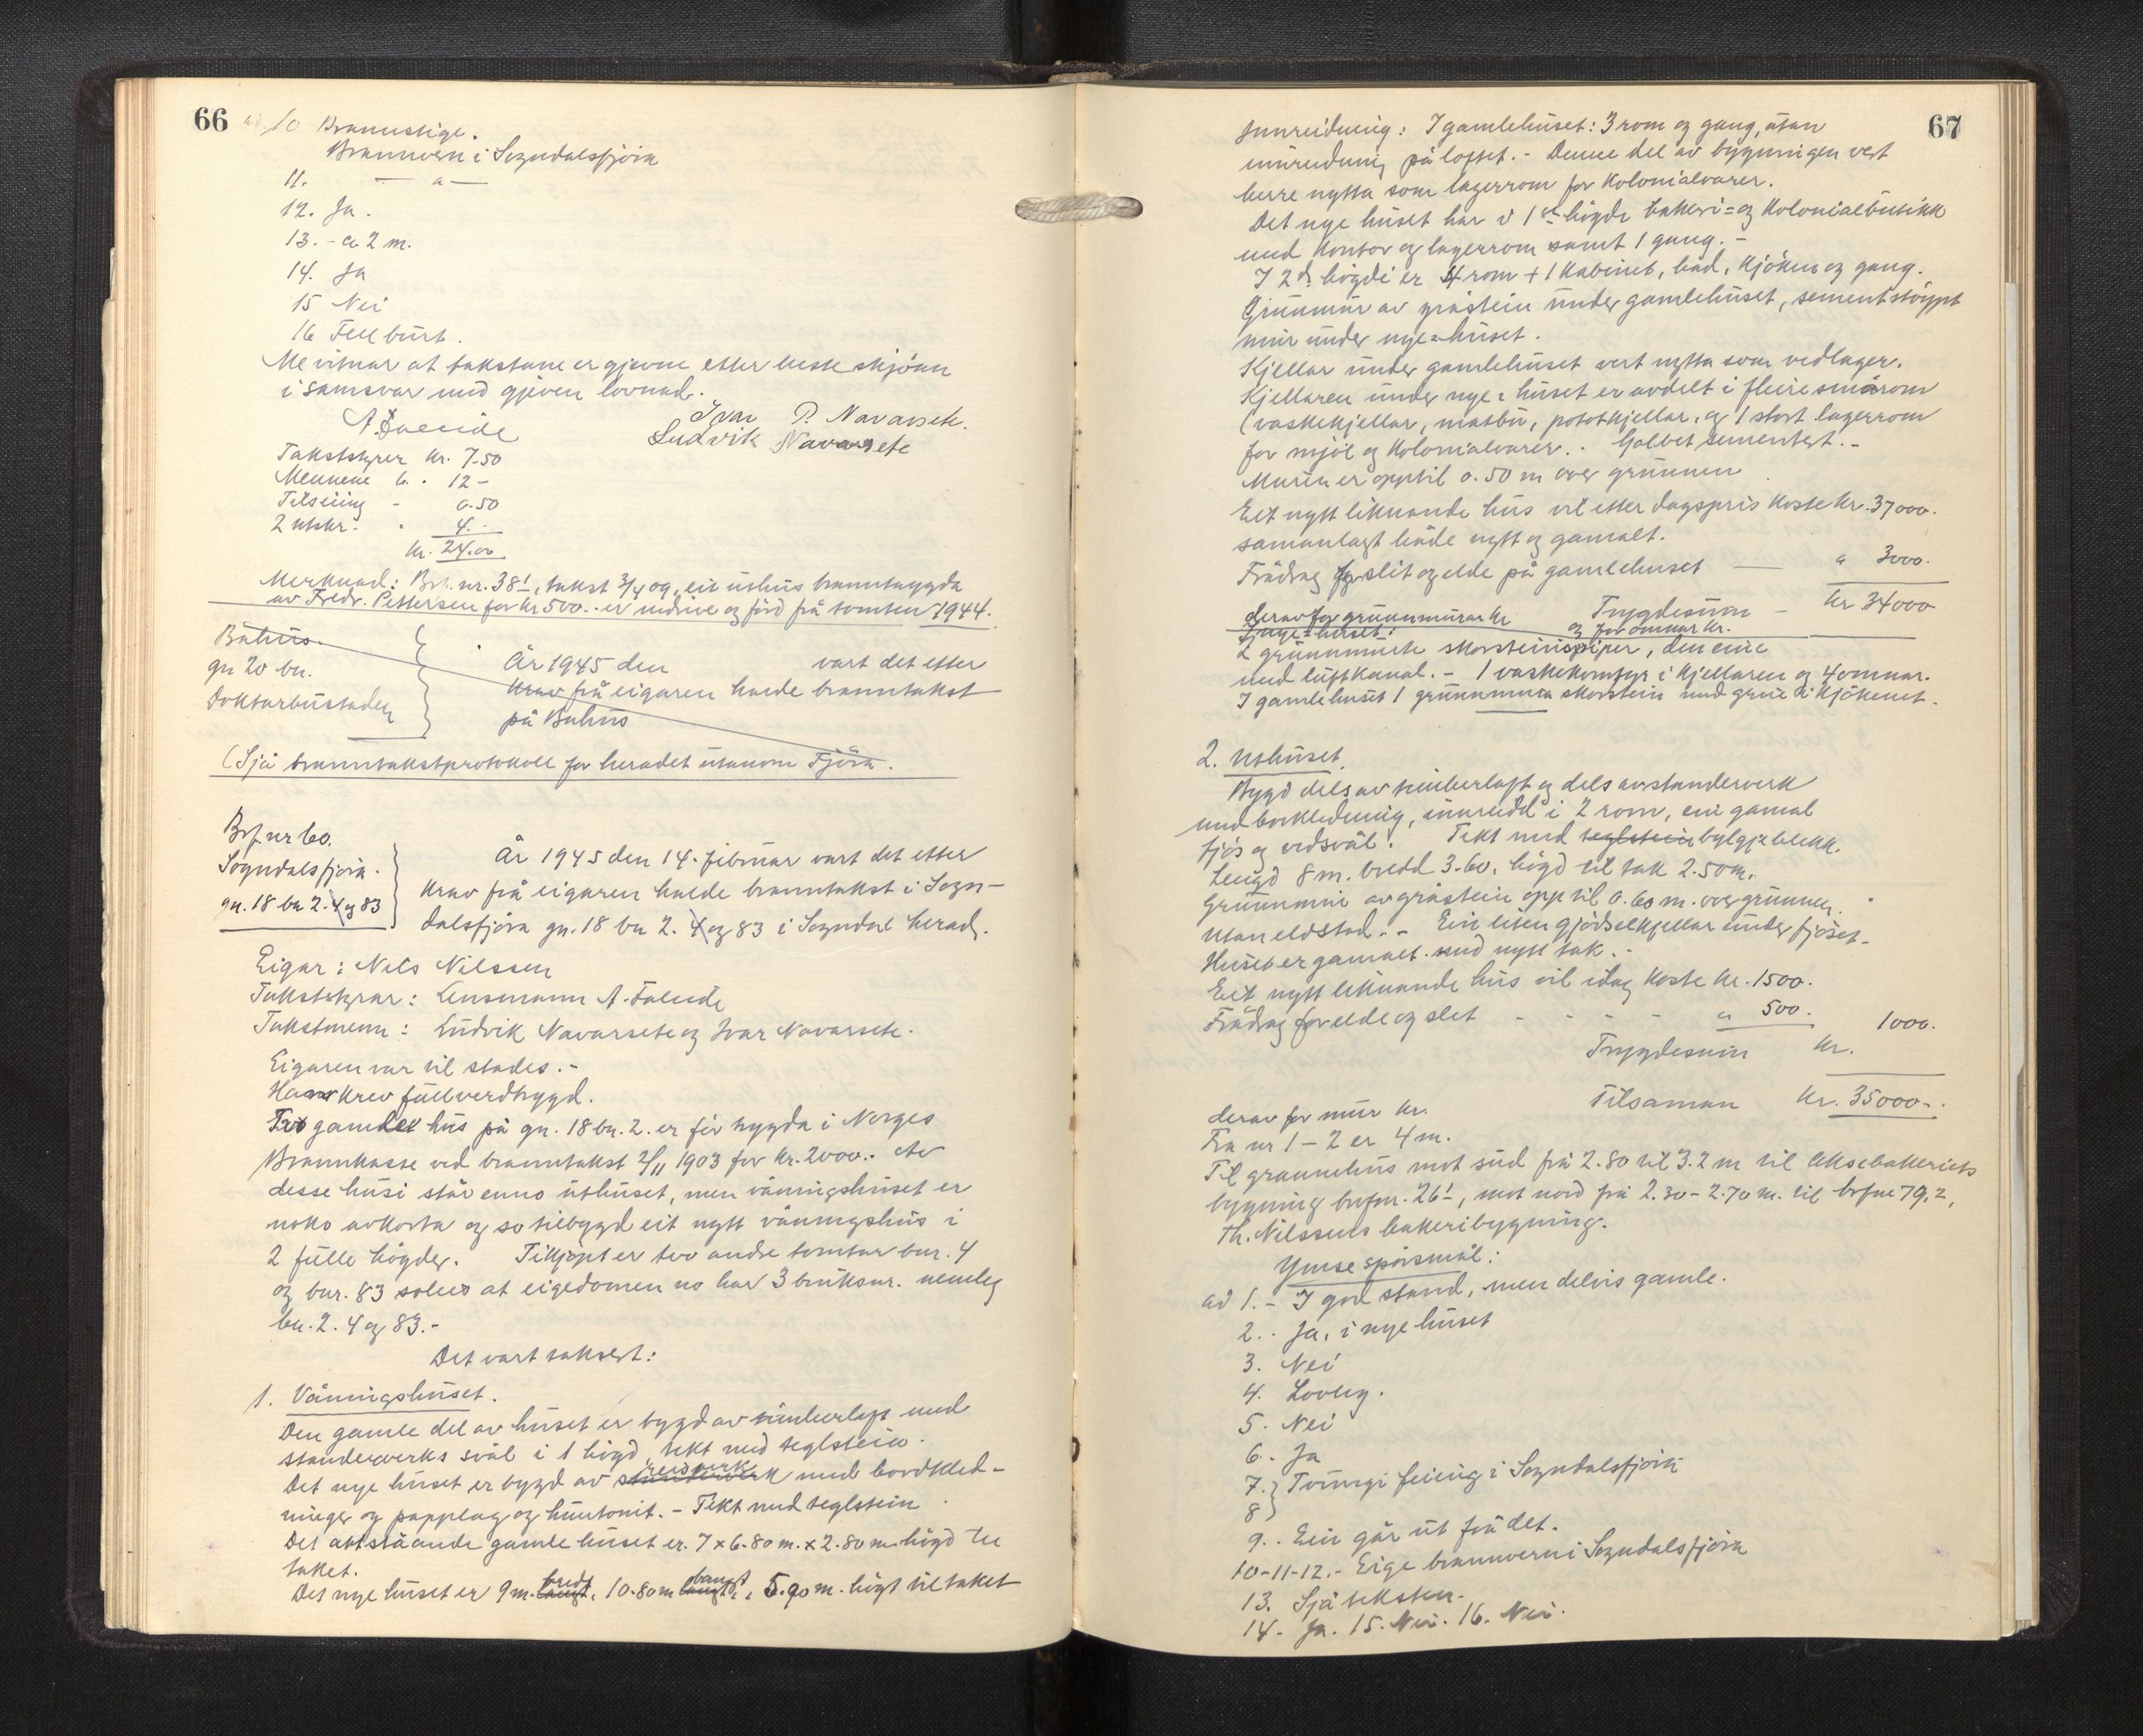 66
ad 10 Brannstige.
Brannvern i Sogndalsfjøra
11. — " —
12. Ja.
13. - ca 2 m.
14. Ja
15 Nei
16 Fell burt.
Me vitnar at takstane er gjevne etter beste skjønn
i samsvar med gjeven lovnad.
A. Faleide
Ivar P. Navarsete.
Ludvik Navarsete
Takstskrer kr. 7.50
Mennene 6. - 12 -
Tilseiing - 0.50
2 utskr. - 4. -
kr. 24.00
Merknad: Brf. nr. 38¹, takst 3/4 09, eit uthus branntrygda
av Fredr. Pettersen for kr 500.- er nedrive og førd frå tomten 1944.
Buhus.
gn 20 bn.
Doktorbustaden
År 1945 den vart det etter
krav frå eigaren halde branntakst
på Buhus
(Sjå branntakstprotokoll for heradet utanom Fjøra.
Brf. nr 60.
Sogndalsfjøra.
gn. 18 bn 2. 4 og 83
År 1945 den 14. februar vart det etter
krav frå eigaren halde branntakst i Sogn-
dalsfjøra gn. 18 bn 2. 4 og 83 i Sogndal herad.
Eigar: Nils Nilssen
Takstskrar: Lensmann A. Faleide
Takstmenn: Ludvik Navarsete og Ivar Navarsete.
Eigaren var til stades. -
Han krev fullverdtrygd.
gamle hus på gn. 18 bn. 2. er før trygda i Norges
Brannkasse ved branntakst 2/11 1903 for kr. 2000.- Av
desse husi står enno uthuset, men våningshuset er
noko avkorta og so tilbygd eit nytt våningshus i
2 fulle høgder. Tilkjøpt er tvo andre tomtar bnr. 4
og bnr. 83 soleis at eigedomen no har 3 bruksnr. nemleg
bn. 2. 4 og 83. -
Det vart taksert:
1. Våningshuset.
Den gamle del av huset er bygd av timberlaft med
standerverks sval i 1 høgd, tekt med teglstein.
Det nye huset er bygd av standerverk reisverk med bordkled-
ninger og papplag og huntonit. - Tekt med teglstein
Det attståande gamle huset er. 7 x 6.80 m. x 2.80 m høgd til
taket.
Det nye huset er 9 m. langt bredt, 10.80 m langt, 5.90 m. høgt til taket
67
Innreidning: I gamlehuset: 3 rom og gang, utan
innreidning på loftet. - Denne del av bygningen vert
berre nytta som lagerrom for kolonialvarer.
Det nye huset har i 1ste høgde bakeri= og kolonialbutikk
med kontor og lagerrom samt 1 gang. -
I 2d. høgdi er 4 rom + 1 kabinet, bad, kjøken og gang.
Grunnmur av gråstein under gamlehuset, sementstøypt
mur under nye=huset.
Kjellar under gamlehuset vert nytta som vedlager.
Kjellaren under nye=huset er avdelt i fleire smårom
(vaskekjellar, matbu, potetkjellar, og 1 stort lagerrom
for mjøl og kolonialvarer. - Golvet sementert. -
Muren er opptil 0.50 m over grunnen
Eit nytt liknande hus vil etter dagspris koste kr. 37000.
samanlagt både nytt og gamalt.
Frådrag for slit og elde på gamlehuset — " 3000.
Trygdesum - kr 34000
derav for grunnmurar kr og for omnar kr.
I nye=huset:
2 grunnmurte skorsteinspiper, den eine
med luftkanal. - 1 vaskekomfyr i kjellaren og 4 omnar.
I gamlehuset 1 grunnmura skorstein med grue i kjøkenet.
2. Uthuset.
Bygd dels av timberlaft og dels av standerverk
med bordkledning, innreidd i 2 rom, ein gamal
fjøs og vedsval. Tekt med teglstein bylgjeblekk.
Lengd 8 m. bredd 3.60, høgd til tak 2.50 m.
Grunnmur av gråstein opp til 0.60 m. over grunnen.
Utan eldstad. - Ein liten gjødselkjellar under fjøset -
Huset er gamalt med nytt tak. -
Eit nytt liknande hus vil idag koste kr. 1500.
Frådrag for elde og slit - - - - " 500.
Trygdesum kr. 1000.
Tilsaman kr. 35000.-
derav for mur kr.
Fra nr 1 - 2 er 4 m.
Til grannehus mot sud frå 2.80 til 3.2 m til Aksebakeriets
bygning brfnr. 26¹, mot nord frå 2.30 - 2.70 m. til brfnr 79.2,
Th. Nilssens bakeribygning.
Ymse spørsmål:
ad 1. - I god stand, men delvis gamle.
2. - Ja, i nye huset
3. Nei
4. Lovleg.
5. Nei
6. Ja
7. } Tvungi feiing i Sogndalsfjøra
8
9. - Ein går ut frå det.
10-11-12. - Eige brannvern i Sogndalsfjøra
13. Sjå teksten.
14. Ja. 15. Nei. 16. Nei.